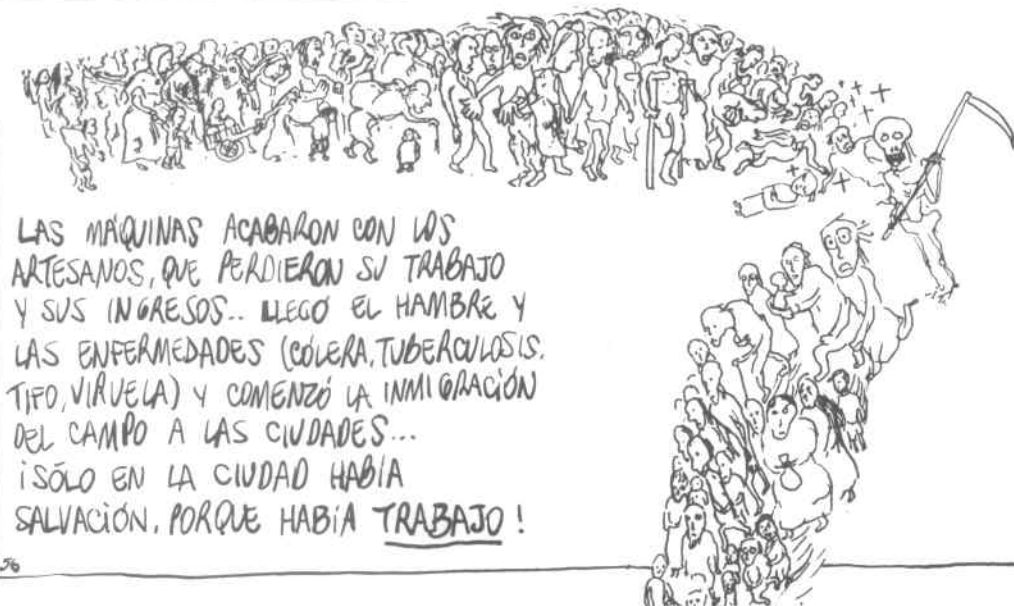 LAS MÁQUINAS ACABARON CON LOS
ARTESANOS, QUE PERDIERON SU TRABAJO
Y SUS INGRESOS.. LLEGÓ EL HAMBRE Y
LAS ENFERMEDADES (CÓLERA, TUBERCULOSIS,
TIFO, VIRUELA) Y COMENZÓ LA INMIGRACIÓN
DEL CAMPO A LAS CIUDADES...
¡SÓLO EN LA CIUDAD HABÍA
SALVACIÓN, PORQUE HABÍA TRABAJO!
56